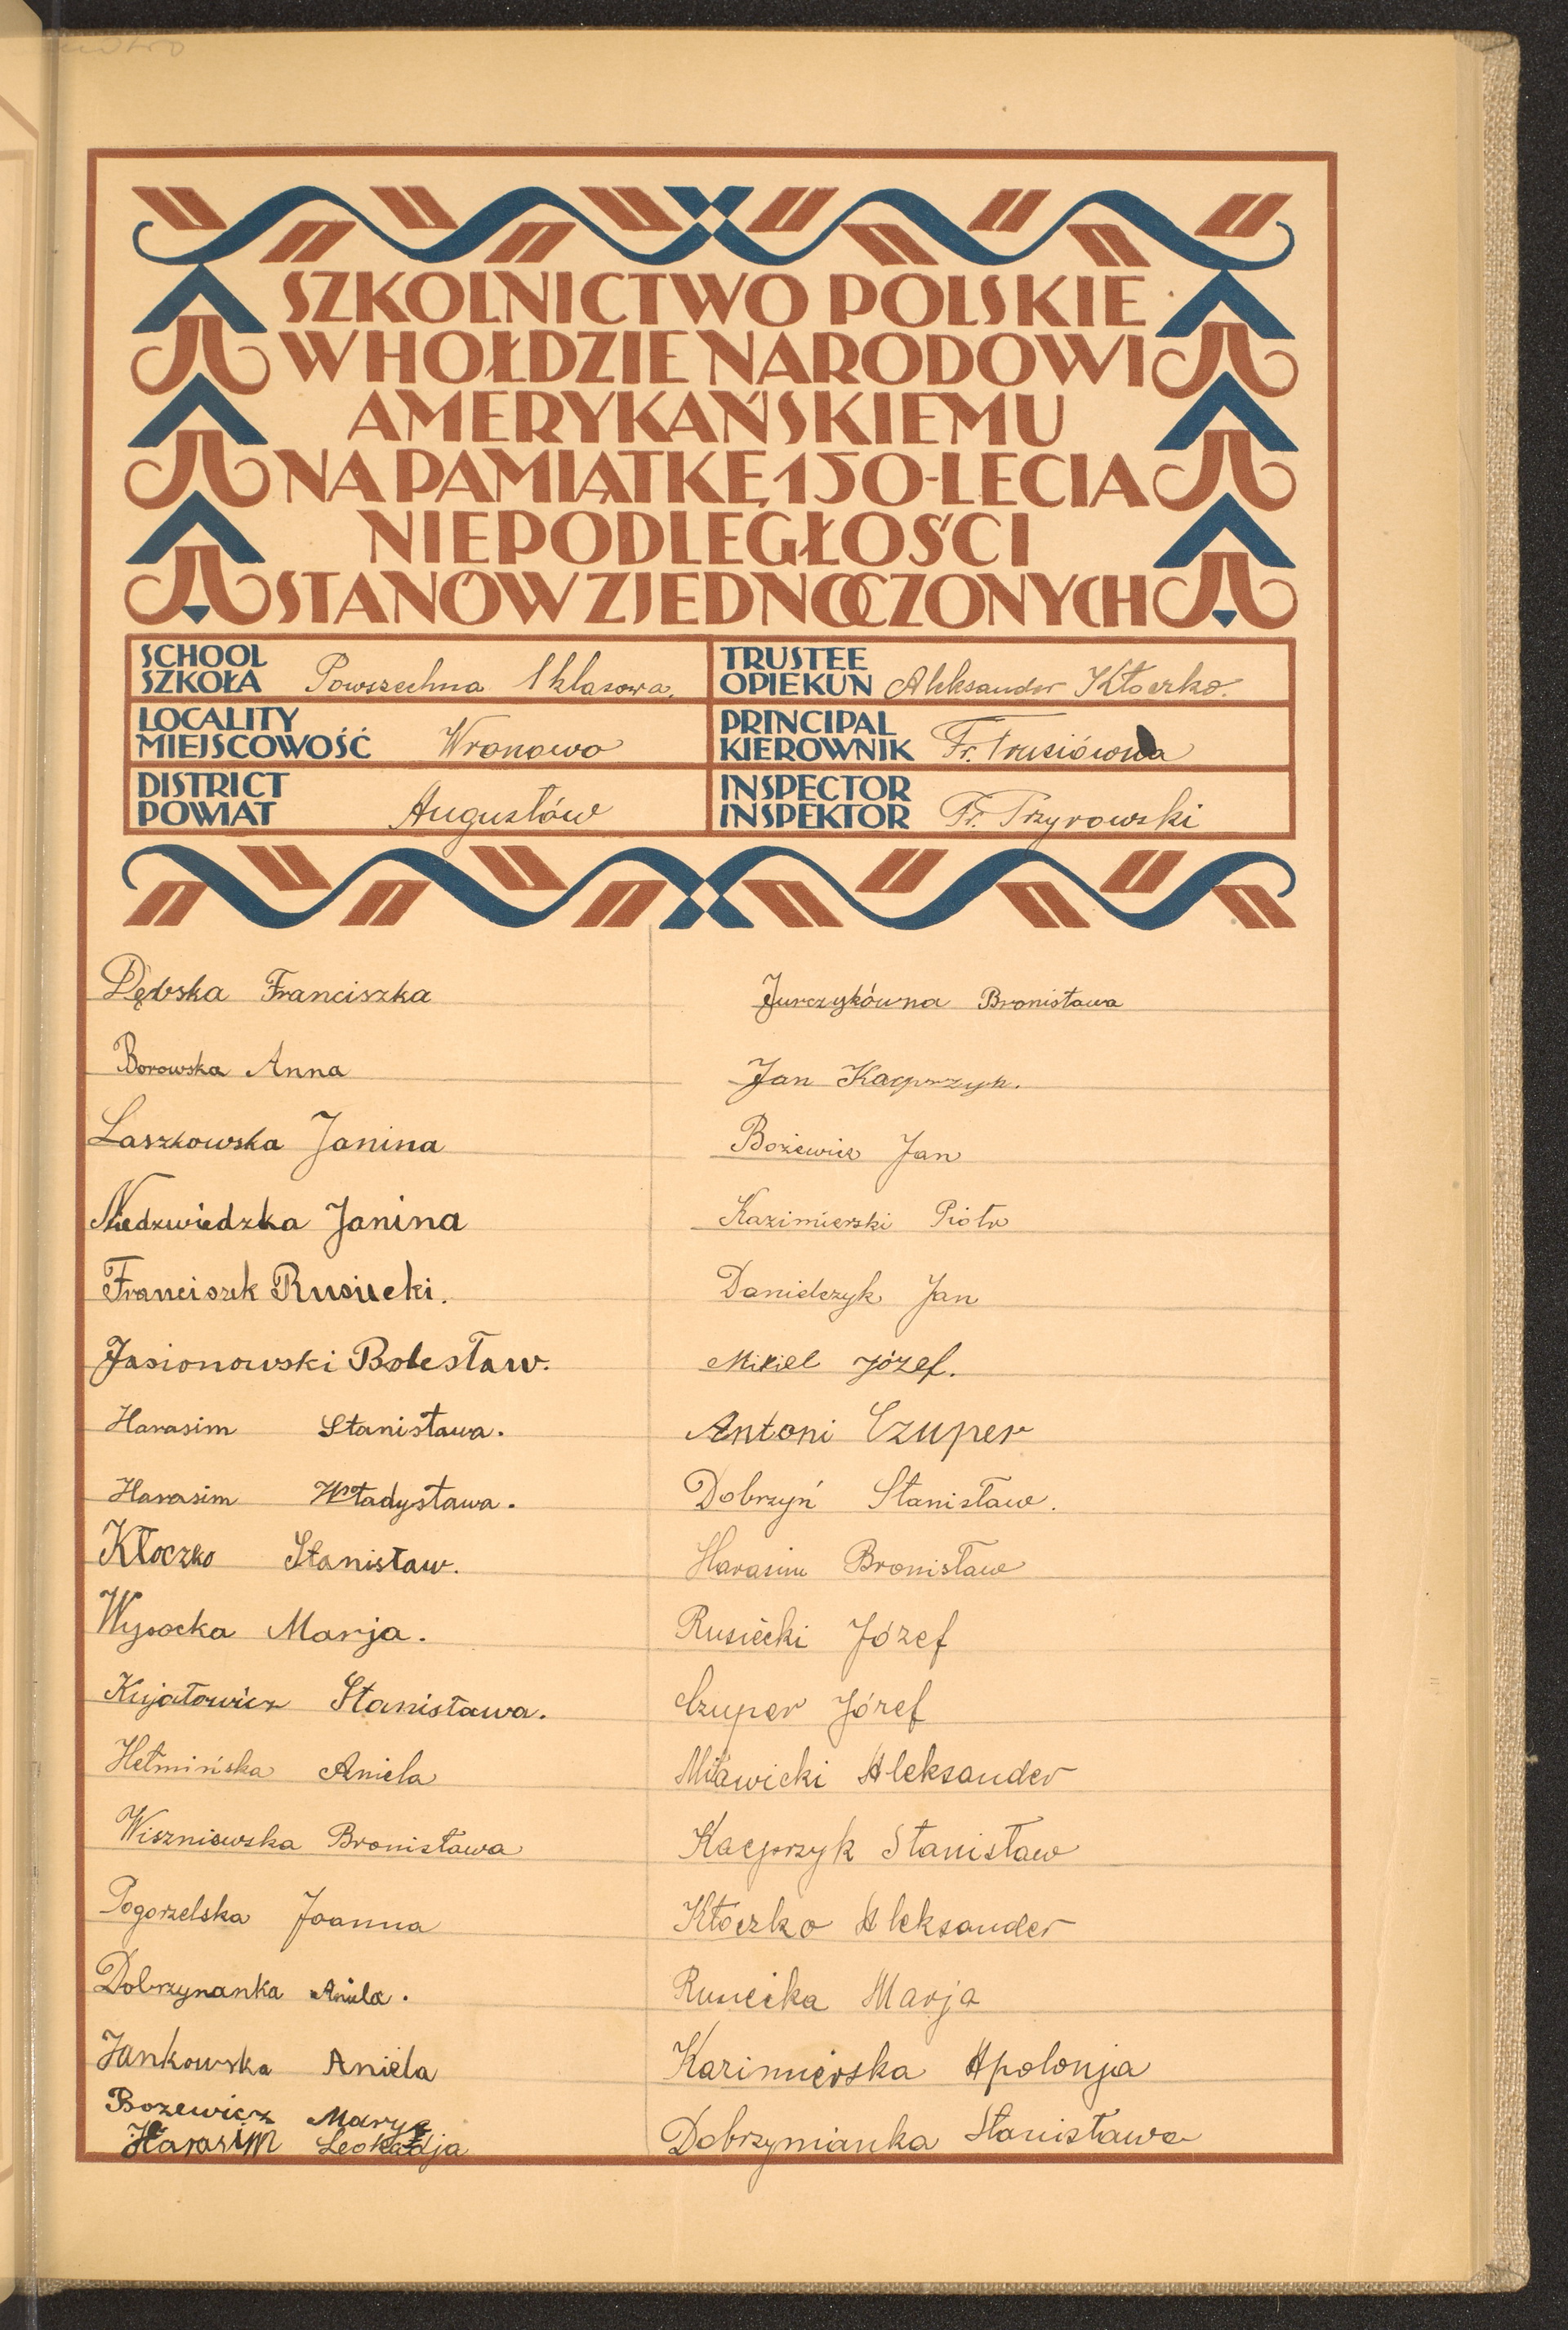 SZKOLNICTWO POLSKIE
W HOŁDZIE NARODOWI
AMERYKAŃSKIEMU
NA PAMIĄTKĘ 150-LECIA
NIEPODLEGŁOŚCI
STANÓW ZJEDNOCZONYCH
SCHOOL
SZKOŁA Powszechna 1 klasowa.
TRUSTEE
OPIEKUN Aleksander Kłoczko.
LOCALITY
MIEJSCOWOŚĆ Wronowo
PRINCIPAL
KIEROWNIK Fr. Trusiówna
DISTRICT
POWIAT Augustów
INSPECTOR
INSPEKTOR Fr. Przyrowski
Dębska Franciszka
Borowska Anna
Laszkowska Janina
Niedzwiedzka Janina
Franciszk Rusiecki.
Jasionowski Bolesław.
Harasim Stanisława.
Harasim Władysława.
Kłoczko Stanisław.
Wysocka Marja.
Kujatowicz Stanisława.
Hełmińska Aniela
Wiszniewska Bronisława
Pogorzelska Joanna
Dobrzynanka Aniela.
Jankowska Aniela
Bozewicz Marya
Harasim Leokadja
Jurczykówna Bronisława
Jan Kacprzyk.
Bożewicz Jan
Kazimierski Piotr
Danielczyk Jan
Mikiel Józef.
Antoni Czuper
Dobrzyń Stanisław.
Harasim Bronisław
Rusiecki Józef
Czuper Józef
Miławicki Aleksander
Kacprzyk Stanisław
Kłoczko Aleksander
Rusiecka Marja
Kazimierska Apolonja
Dobrzynianka Stanisława